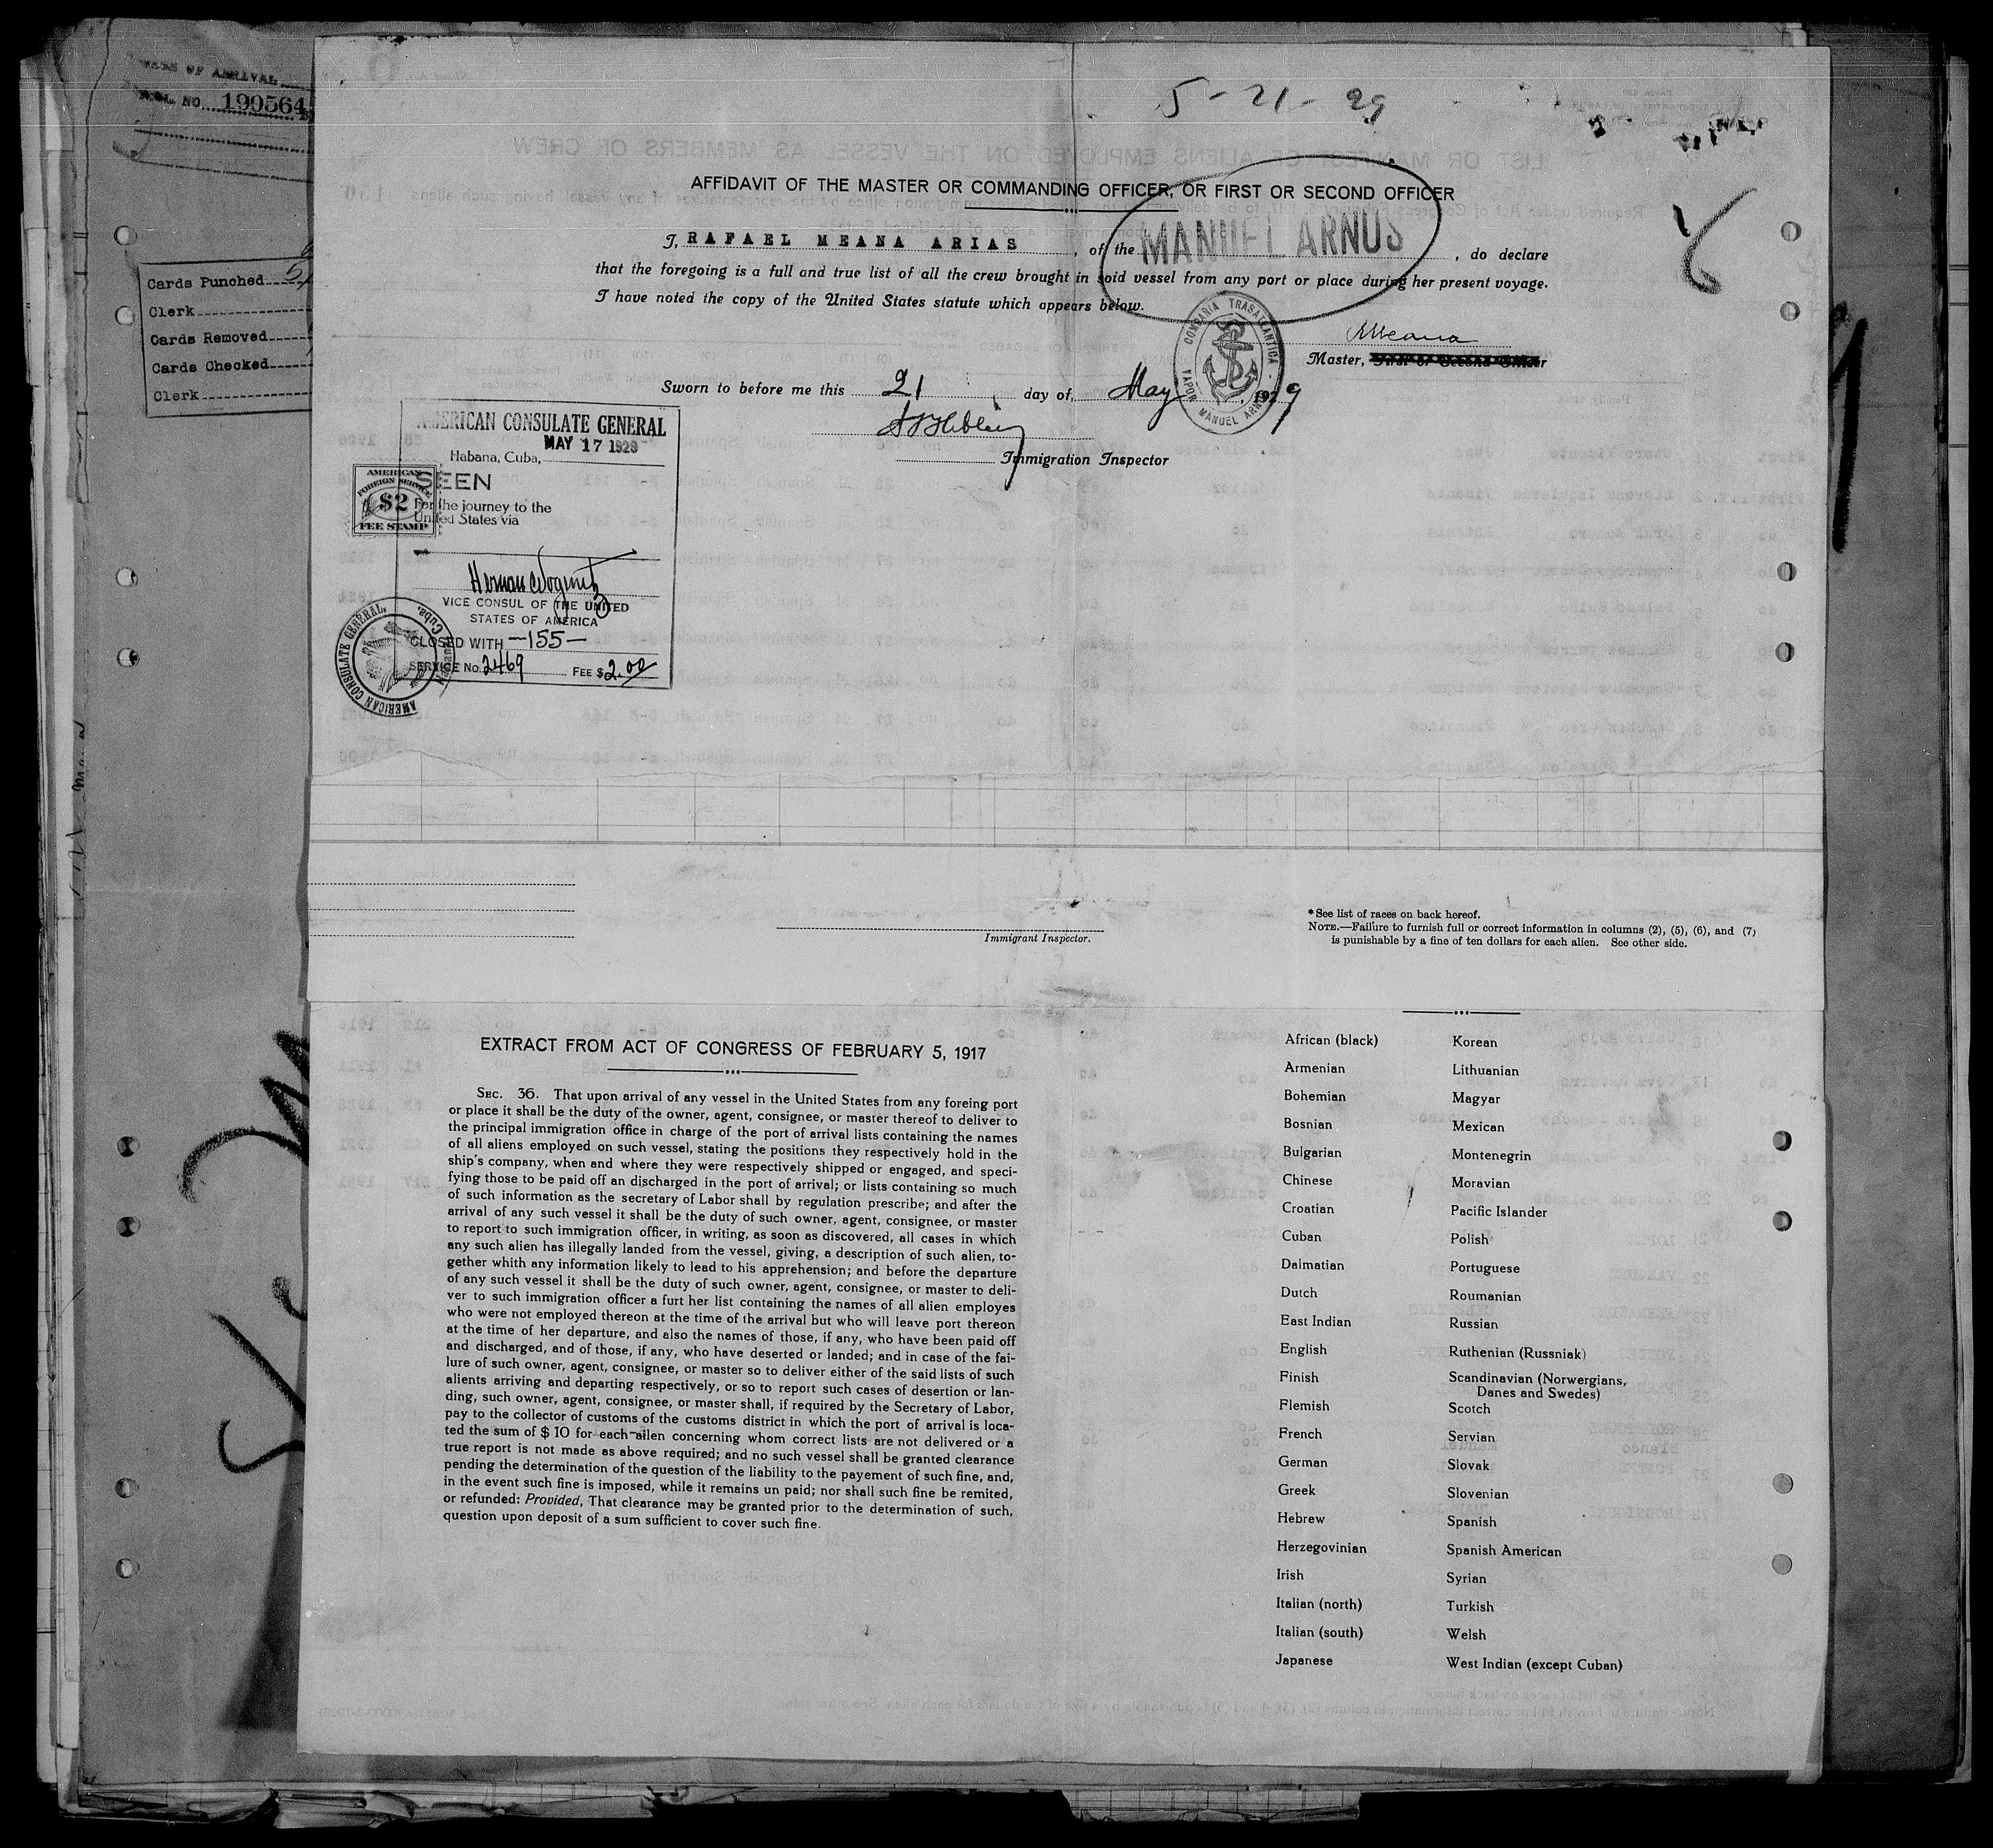 DATE OF ARRIVAL
NO. 190564
Cards Punched
Clerk
Cards Removed
Cards Checked
Clerk
5-21-29
AFFIDAVIT OF THE MASTER OR COMMANDING OFFICER, OR FIRST OR SECOND OFFICER
I, RAFAEL MEANA ARIAS, of the MANUEL ARNUS, do declare
that the foregoing is a full and true list of all the crew brought in said vessel from any port or place during her present voyage.
I have noted the copy of the United States statute which appears below.
COMPAÑIA TRASATLANTICA
VAPOR MANUEL ARNUS
RMeana
Master, First or Second Officer
Sworn to before me this 21 day of May, 1929
Immigration Inspector
AMERICAN CONSULATE GENERAL
MAY 17 1929
Habana, Cuba,
SEEN
For the journey to the
United States via
AMERICAN
FOREIGN SERVICE
$2
FEE STAMP
VICE CONSUL OF THE UNITED
STATES OF AMERICA
CLOSED WITH —155—
SERVICE No. 2469 FEE $2.00
AMERICAN CONSULATE GENERAL, Habana, Cuba.
Immigrant Inspector.
*See list of races on back hereof.
NOTE.—Failure to furnish full or correct information in columns (2), (5), (6), and (7)
is punishable by a fine of ten dollars for each alien. See other side.
EXTRACT FROM ACT OF CONGRESS OF FEBRUARY 5, 1917
SEC. 36. That upon arrival of any vessel in the United States from any foreing port
or place it shall be the duty of the owner, agent, consignee, or master thereof to deliver to
the principal immigration office in charge of the port of arrival lists containing the names
of all aliens employed on such vessel, stating the positions they respectively hold in the
ship's company, when and where they were respectively shipped or engaged, and speci-
fying those to be paid off an discharged in the port of arrival; or lists containing so much
of such information as the secretary of Labor shall by regulation prescribe; and after the
arrival of any such vessel it shall be the duty of such owner, agent, consignee, or master
to report to such immigration officer, in writing, as soon as discovered, all cases in which
any such alien has illegally landed from the vessel, giving, a description of such alien, to-
gether whith any information likely to lead to his apprehension; and before the departure
of any such vessel it shall be the duty of such owner, agent, consignee, or master to deli-
ver to such immigration officer a furt her list containing the names of all alien employes
who were not employed thereon at the time of the arrival but who will leave port thereon
at the time of her departure, and also the names of those, if any, who have been paid off
and discharged, and of those, if any, who have deserted or landed; and in case of the fai-
lure of such owner, agent, consignee, or master so to deliver either of the said lists of such
alients arriving and departing respectively, or so to report such cases of desertion or lan-
ding, such owner, agent, consignee, or master shall, if required by the Secretary of Labor,
pay to the collector of customs of the customs district in which the port of arrival is loca-
ted the sum of $ 10 for each ailen concerning whom correct lists are not delivered or a
true report is not made as above required; and no such vessel shall be granted clearance
pending the determination of the question of the liability to the payement of such fine, and,
in the event such fine is imposed, while it remains un paid; nor shall such fine be remited,
or refunded: Provided, That clearance may be granted prior to the determination of such,
question upon deposit of a sum sufficient to cover such fine.
African (black)
Armenian
Bohemian
Bosnian
Bulgarian
Chinese
Croatian
Cuban
Dalmatian
Dutch
East Indian
English
Finish
Flemish
French
German
Greek
Hebrew
Herzegovinian
Irish
Italian (north)
Italian (south)
Japanese
Korean
Lithuanian
Magyar
Mexican
Montenegrin
Moravian
Pacific Islander
Polish
Portuguese
Roumanian
Russian
Ruthenian (Russniak)
Scandinavian (Norwergians,
Danes and Swedes)
Scotch
Servian
Slovak
Slovenian
Spanish
Spanish American
Syrian
Turkish
Welsh
West Indian (except Cuban)